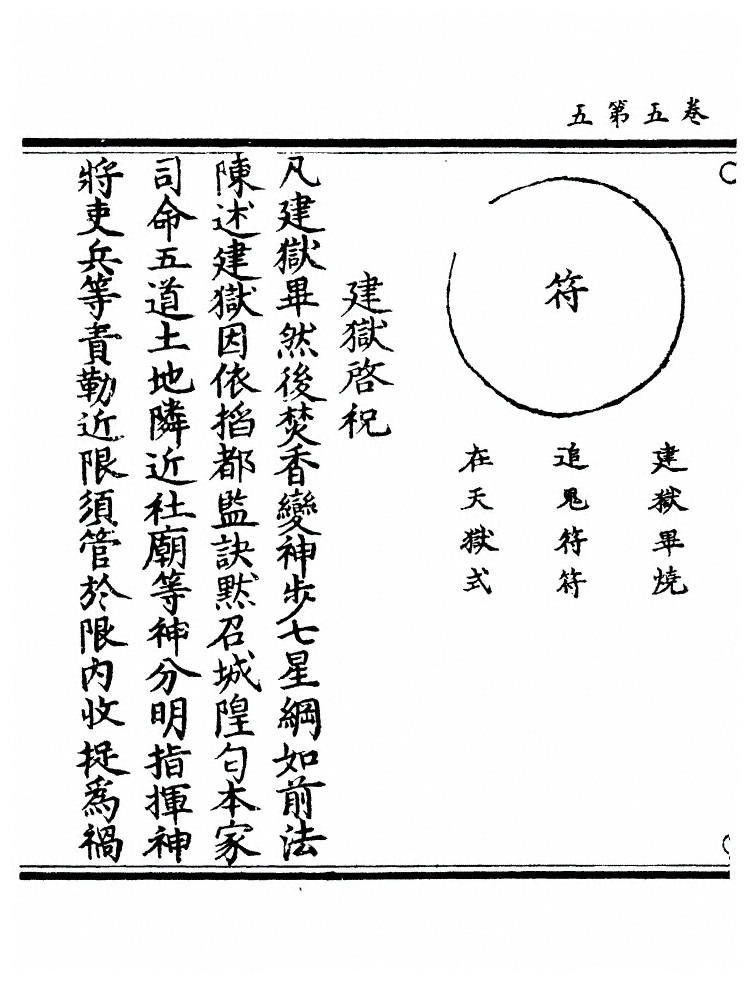 卷五第五
符
建獄畢燒
追鬼符符
在天獄式
建獄啓祝
凡建獄畢然後焚香變神步七星綱如前法
陳述建獄因依搯都監訣默召城隍勾本家
司命五道土地隣近社廟等神分明指揮神
將吏兵等責勒近限須管於限内收捉爲禍